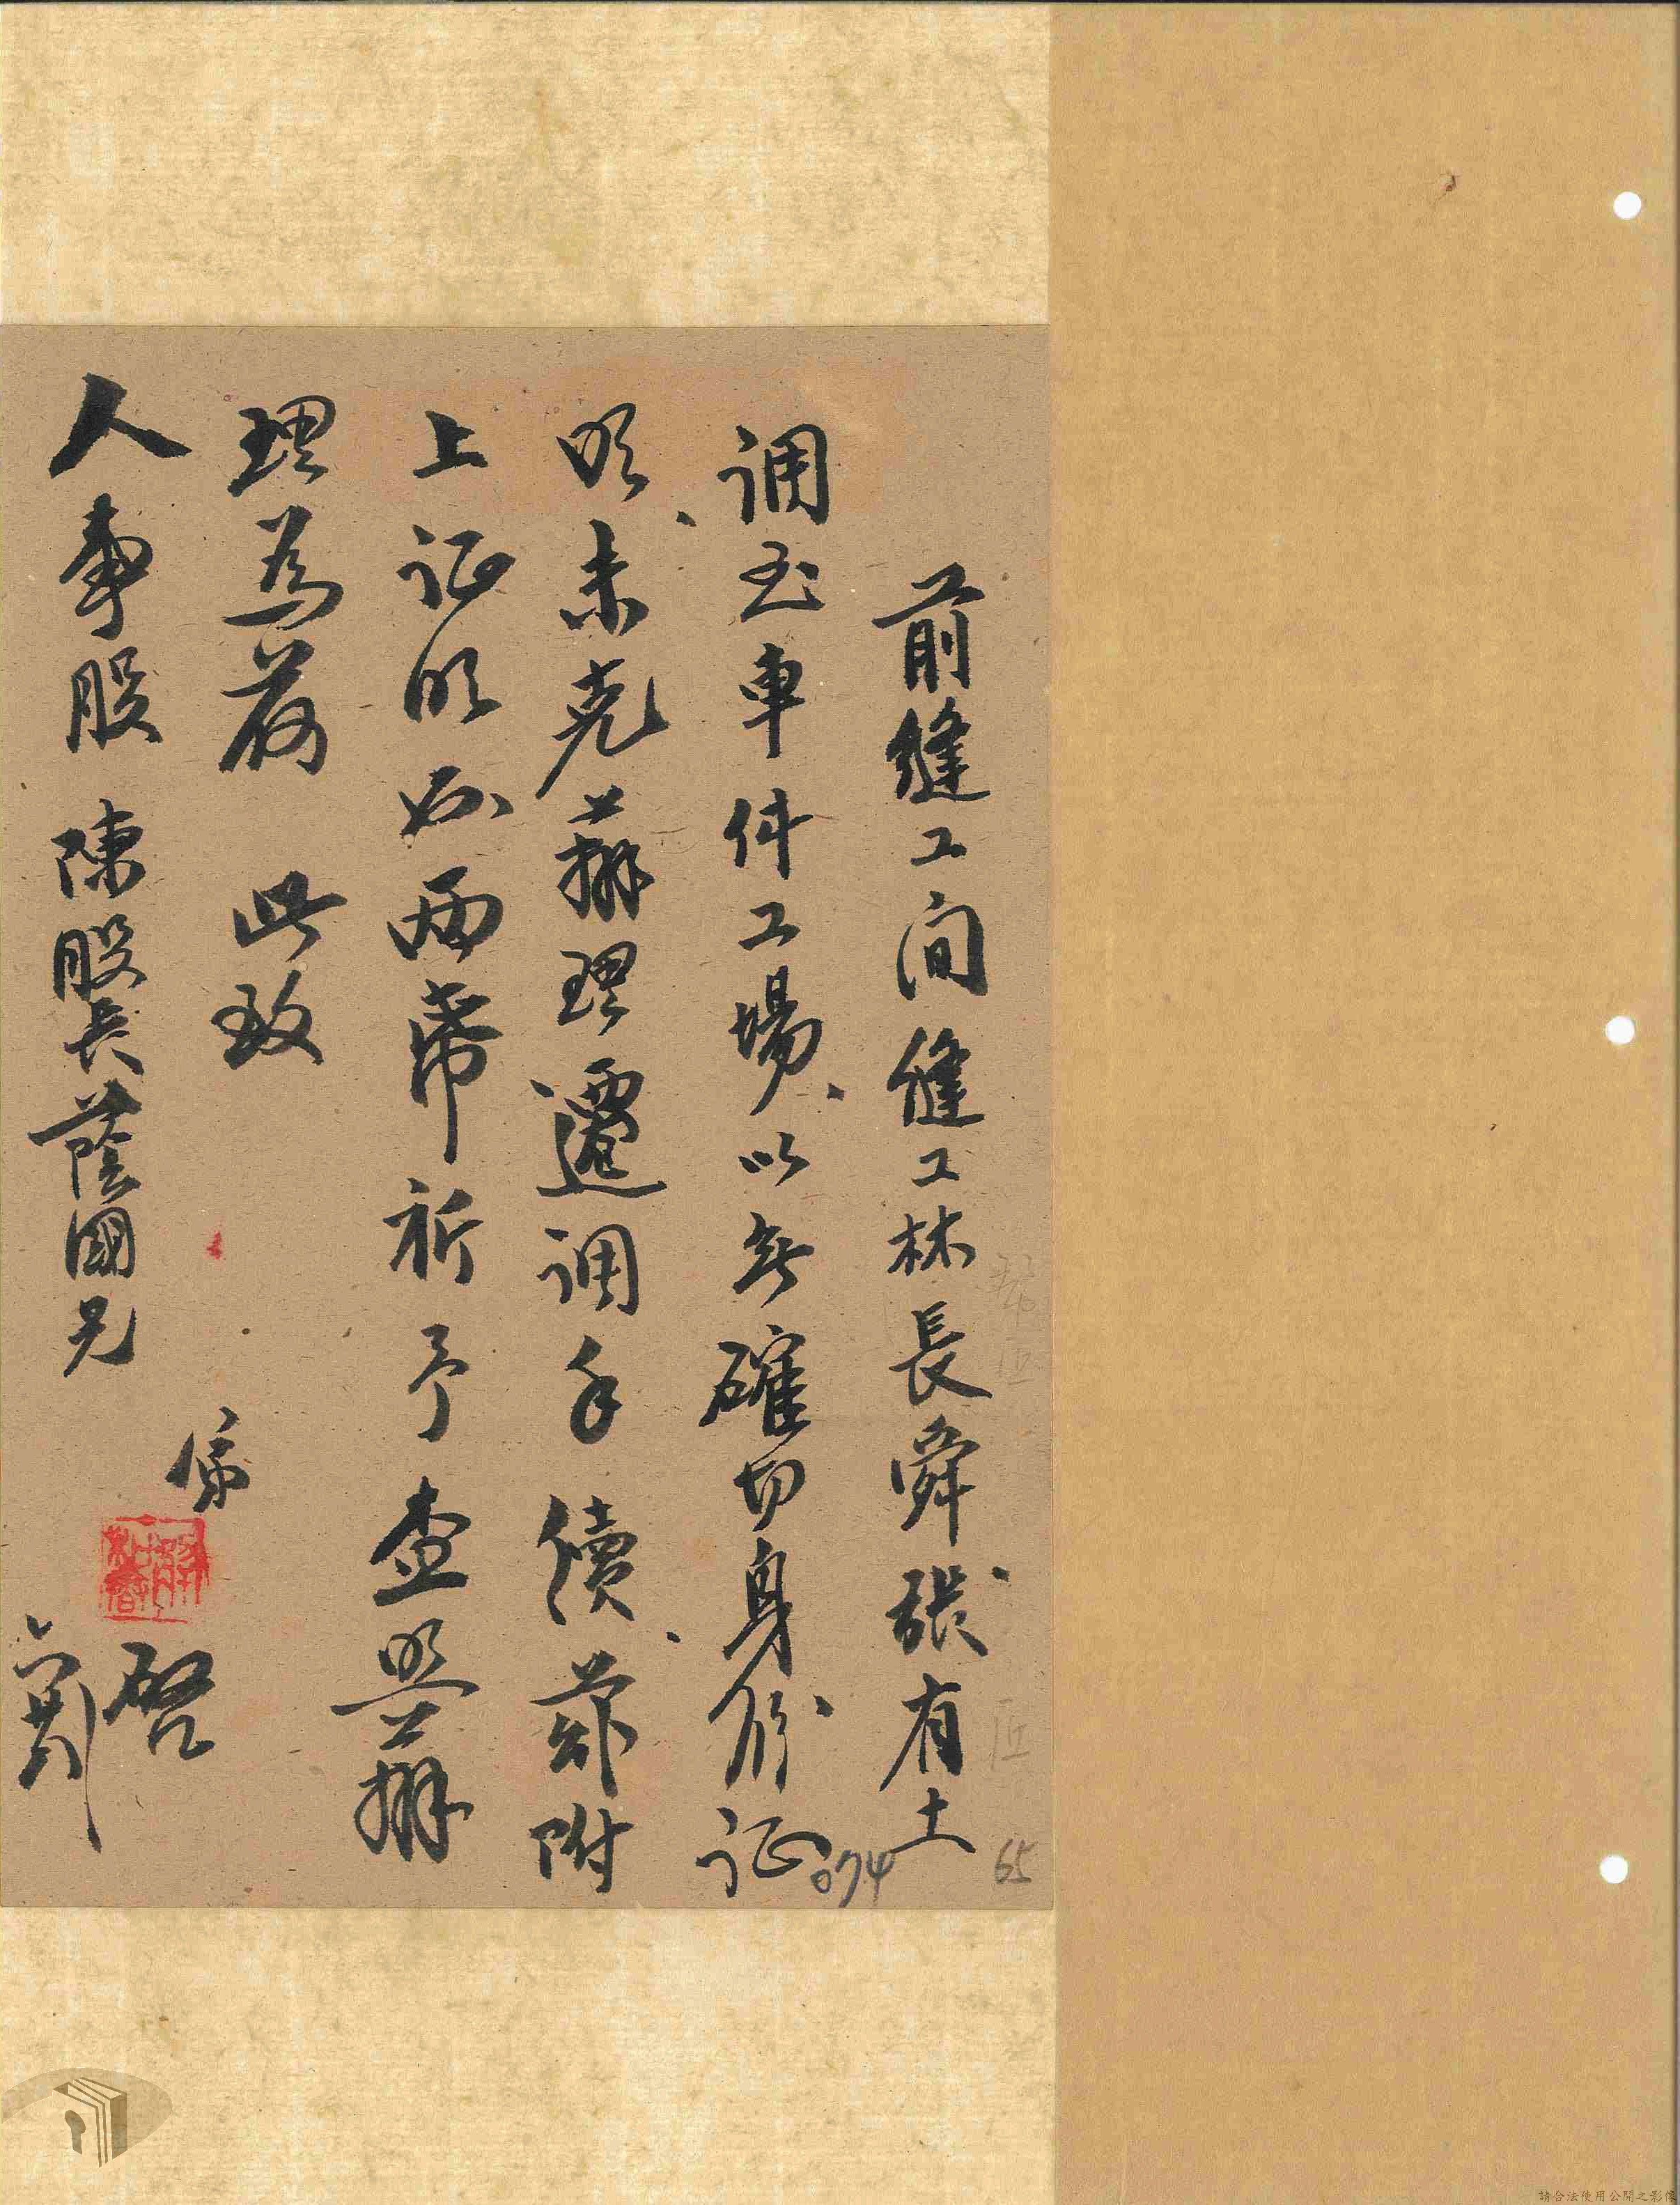 前縫工间縫工林長舜、張有土
调至車件工場、以無確切身份证
明、未克辦理遷调手續、茲附
上证明如両帋祈予查照辦
理為荷 此致
人事股 陳股長蔭國兄
啓
074
65
請合法使用公開之影像